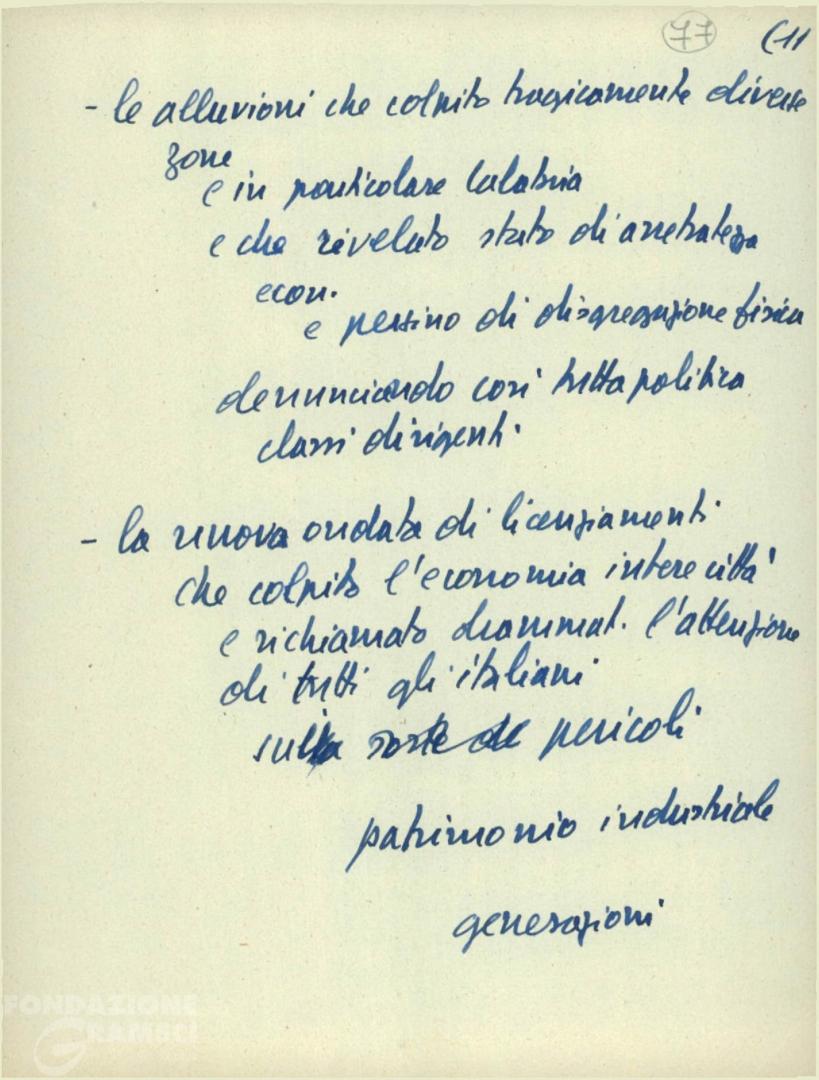 77 (11
- le alluvioni che colpito tragicamente diverse
zone
e in particolare Calabria
e che rivelato stato di arretratezza
econ.
e persino di disgregazione fisica
denunciando così tutta politica
classi dirigenti.
- la nuova ondata di licenziamenti
che colpito l'economia intere città
e richiamato drammat. l'attenzione
di tutti gli italiani
sui sorte de pericoli
patrimonio industriale
generazioni
FONDAZIONE
GRAMSCI